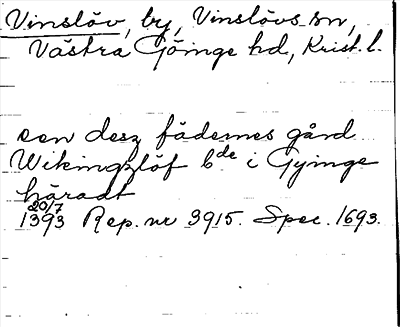 Vinslöv, by, Vinslövs sn,
Västra Göinge hd, Krist. l.
een desz fädernes gård
Wikingzlöf b de i Gyinge
häradt
20/7
1393 Rep. nr 3915. Spec. 1693.